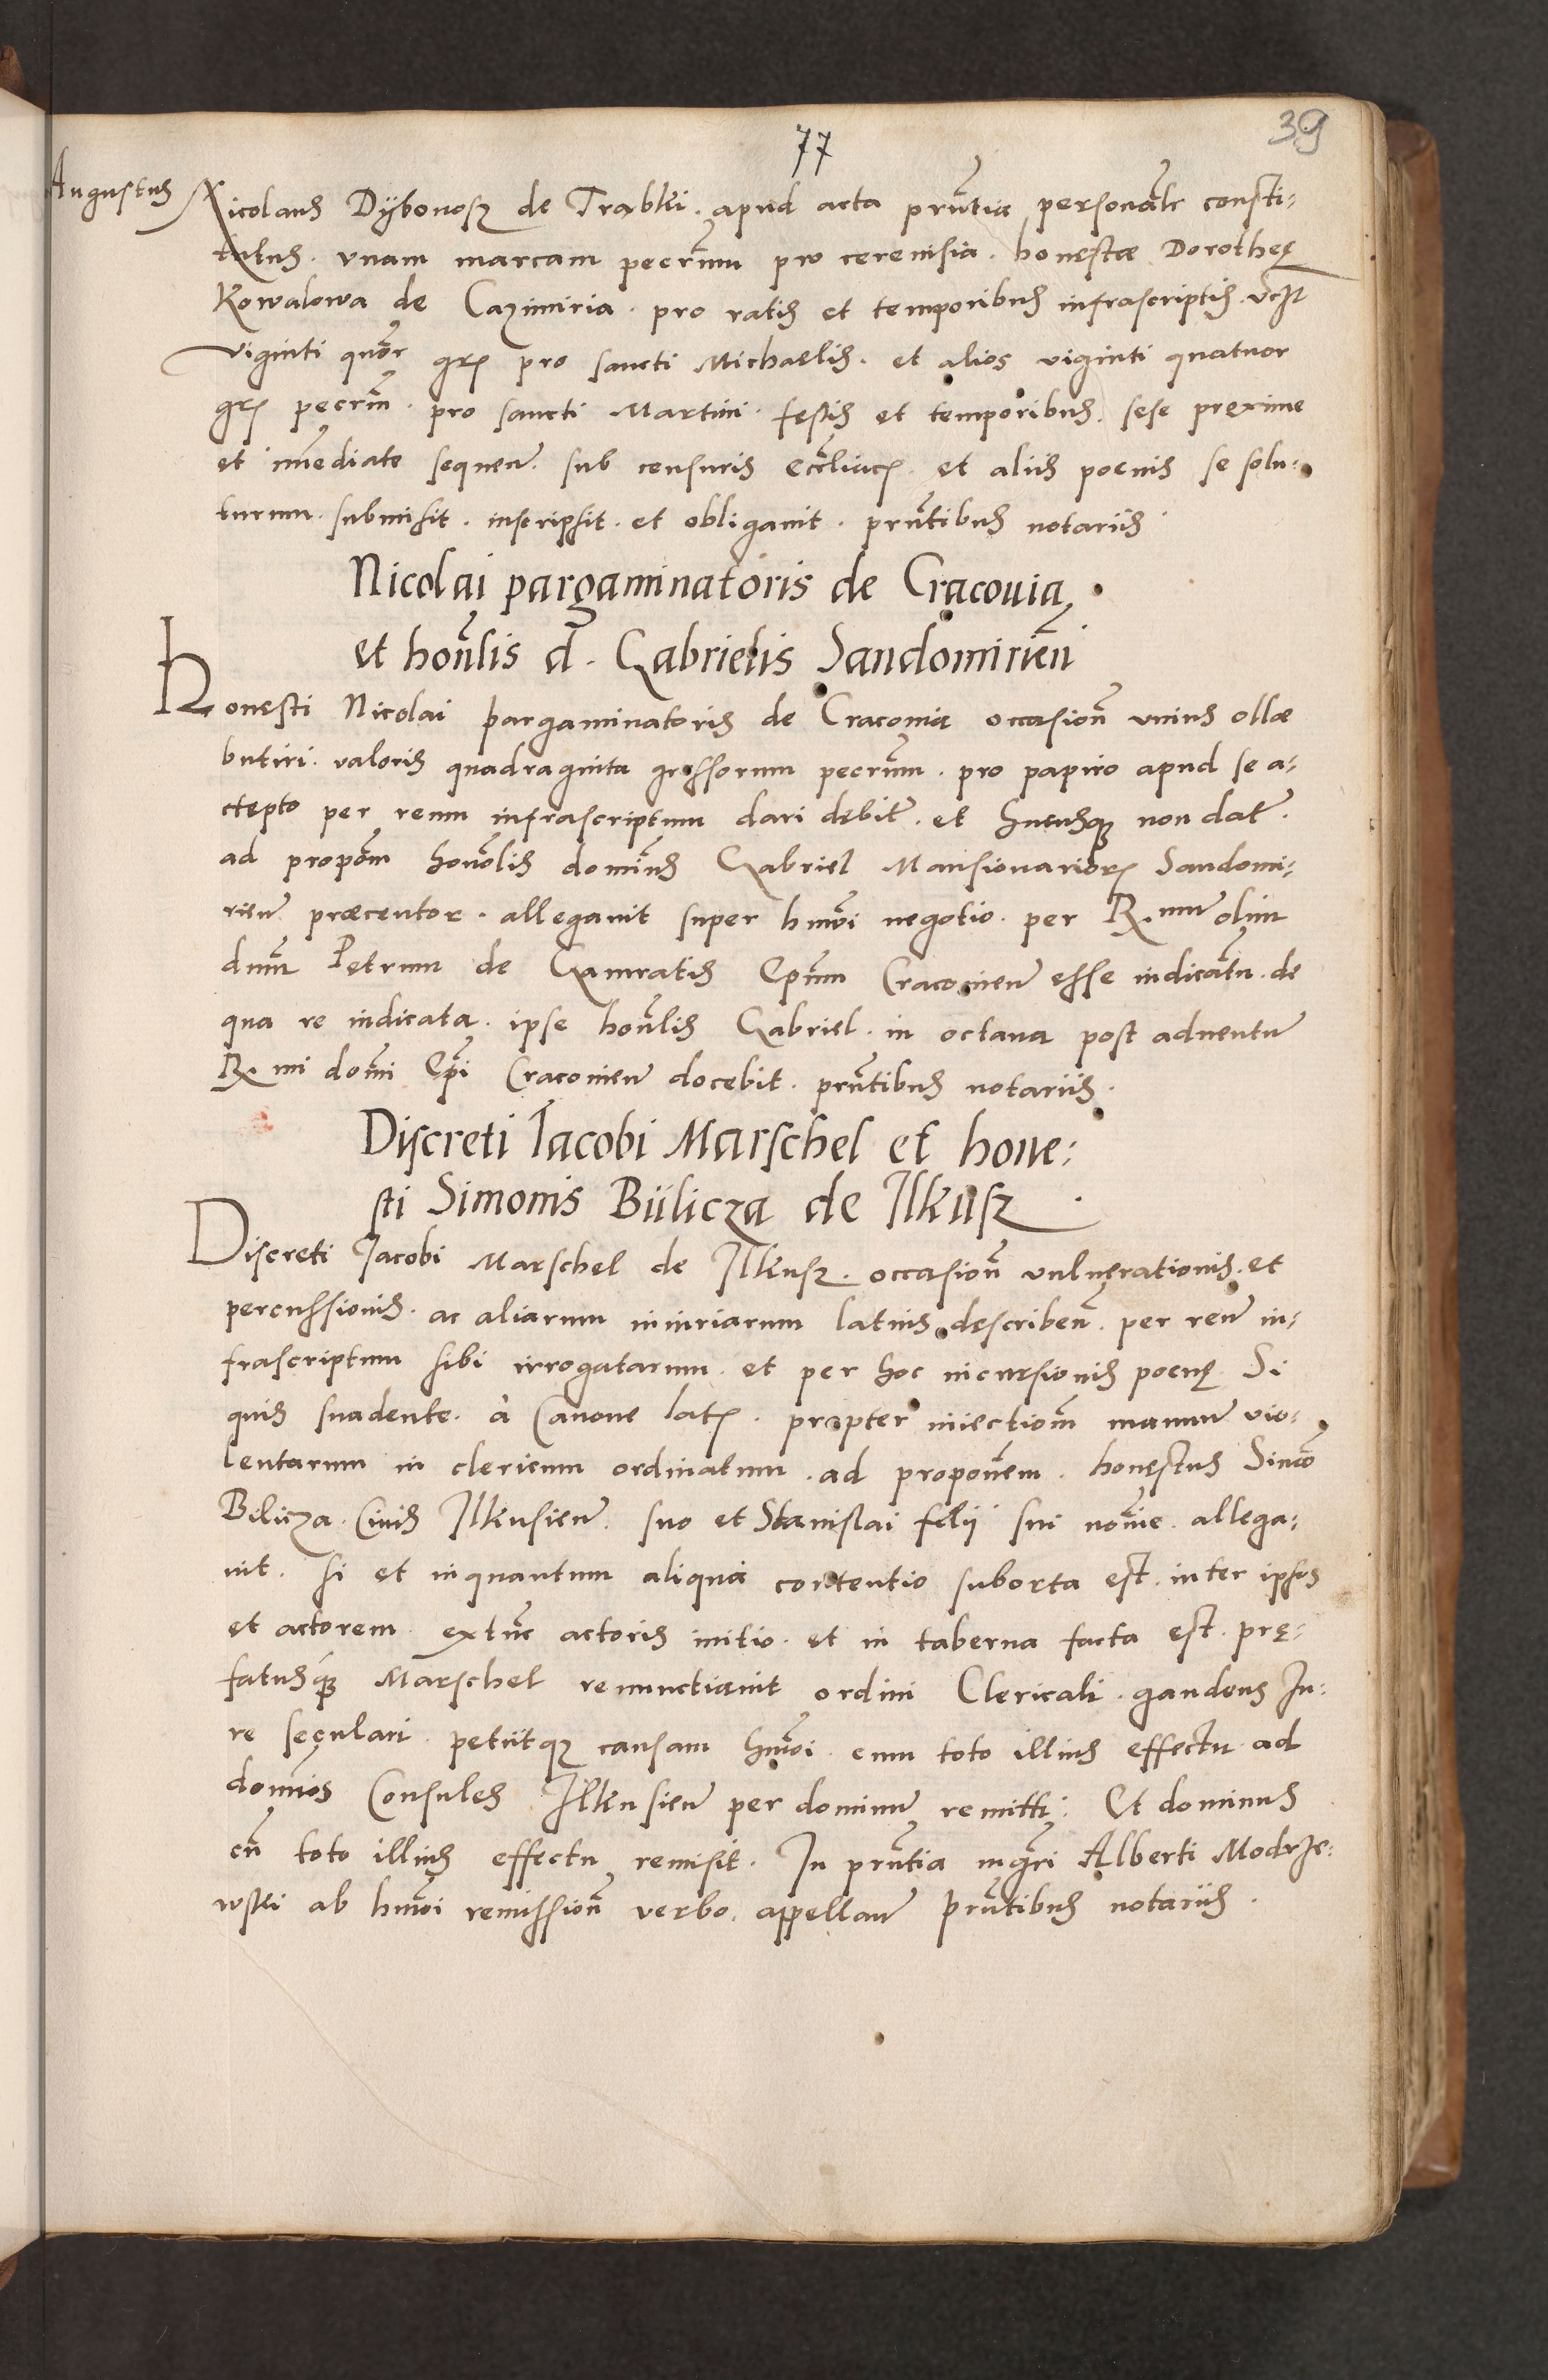 77
39
Augustus
Nicolaus Dybonosz de Trąbki . apud acta prñtia personalr consti-
tutus . vnam marcam pecrum pro cerevisia . honestæ Dorotheę
Kowalowa de Cazimiria . pro ratis et temporibus infrascriptis . vclt
viginti quõr grs pro sancti Michaelis . et alios viginti quatuor
grs pecrm . pro sancti Martini . festis et temporibus . sese proxime
et immediate sequen . sub censuris eccliacs . et aliis poenis se solu-
turum . submisit . inscripsit . et obligauit . prñtibus notariis .
Nicolai pargaminatoris de Cracouia .
et honlis d . Gabrielis Sandomirien
Honesti Nicolai pargaminatoris de Cracouia occasione vnius ollæ
butiri . valoris quadraginta grossorum pecrum . pro papiro apud se a-
ctepto per reum infrascriptum dari debit . et hucusque non dat .
ad propõm honolis dominus Gabriel Mansionariors Sandomi-
rien præcentor . allegauit super hmõi negotio . per R.mum olim
dnum Petrum de Gamratis Epum Cracouien esse iudicatu . de
qua re iudicata . ipse honlis Gabriel . in octaua post aduentu
R.mi domi Epi Cracouien docebit . prñtibus notariis .
Discreti Iacobi Marschel et hone-
sti Simonis Bilicza de Ilkusz .
Discreti Jacobi Marschel de Ilkusz . occasione vulnerationis . et
percussionis . ac aliarum iniuriarum latius describen . per reu in-
frascriptum sibi irrogatarum . et per hoc incursionis poenę . Si
quis suadente . à Canone lats . propter iniectiom manuu vio-
lentarum in clericum ordinatum . ad proponem . honestus Simõ
Bilicza . Ciuis Ilkusien . suo et Stanislai filij sui noie . allega-
uit . si et inquantum aliqua contentio suborta est . inter ipsos
et actorem . extunc actoris initio . et in taberna facta est . pre-
fatusque Marschel renunctiauit ordini Clericali . gaudens Iu-
re seculari . petiitque causam hmõi . cum toto illius effectu . ad
domios Consules Ilkusien per dominu remitti . Et dominus
cu toto illius effectu remisit . In prñtia mgri Alberti Modrze-
wski ab hmõi remissione verbo . appellan prñtibus notariis .